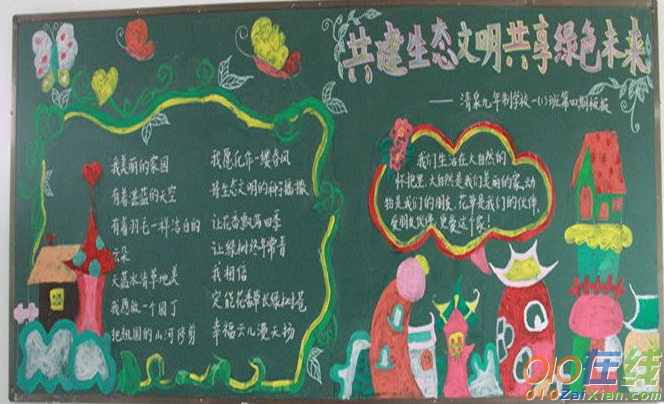 共建生态文明共享绿色未来
——清泉九年制学校一(1)班第四期板报
我美丽的家园
有着湛蓝的天空
有着羽毛一样洁白的
云朵
天蓝水清草地美
我愿做一个园丁
把祖国的山河修剪
我愿化作一缕春风
将生态文明的种子播撒
让花香飘弄四季
让绿树终年常青
我相信
定能花香草长绿树苍
幸福云儿漫天扬
我们生活在大自然的
怀抱里,大自然是我们美丽的家,动
物是我们的朋友,花草是我们的伙伴,
爱朋友伙伴,更要爱这个家!
010在线
010ZaiXian.com